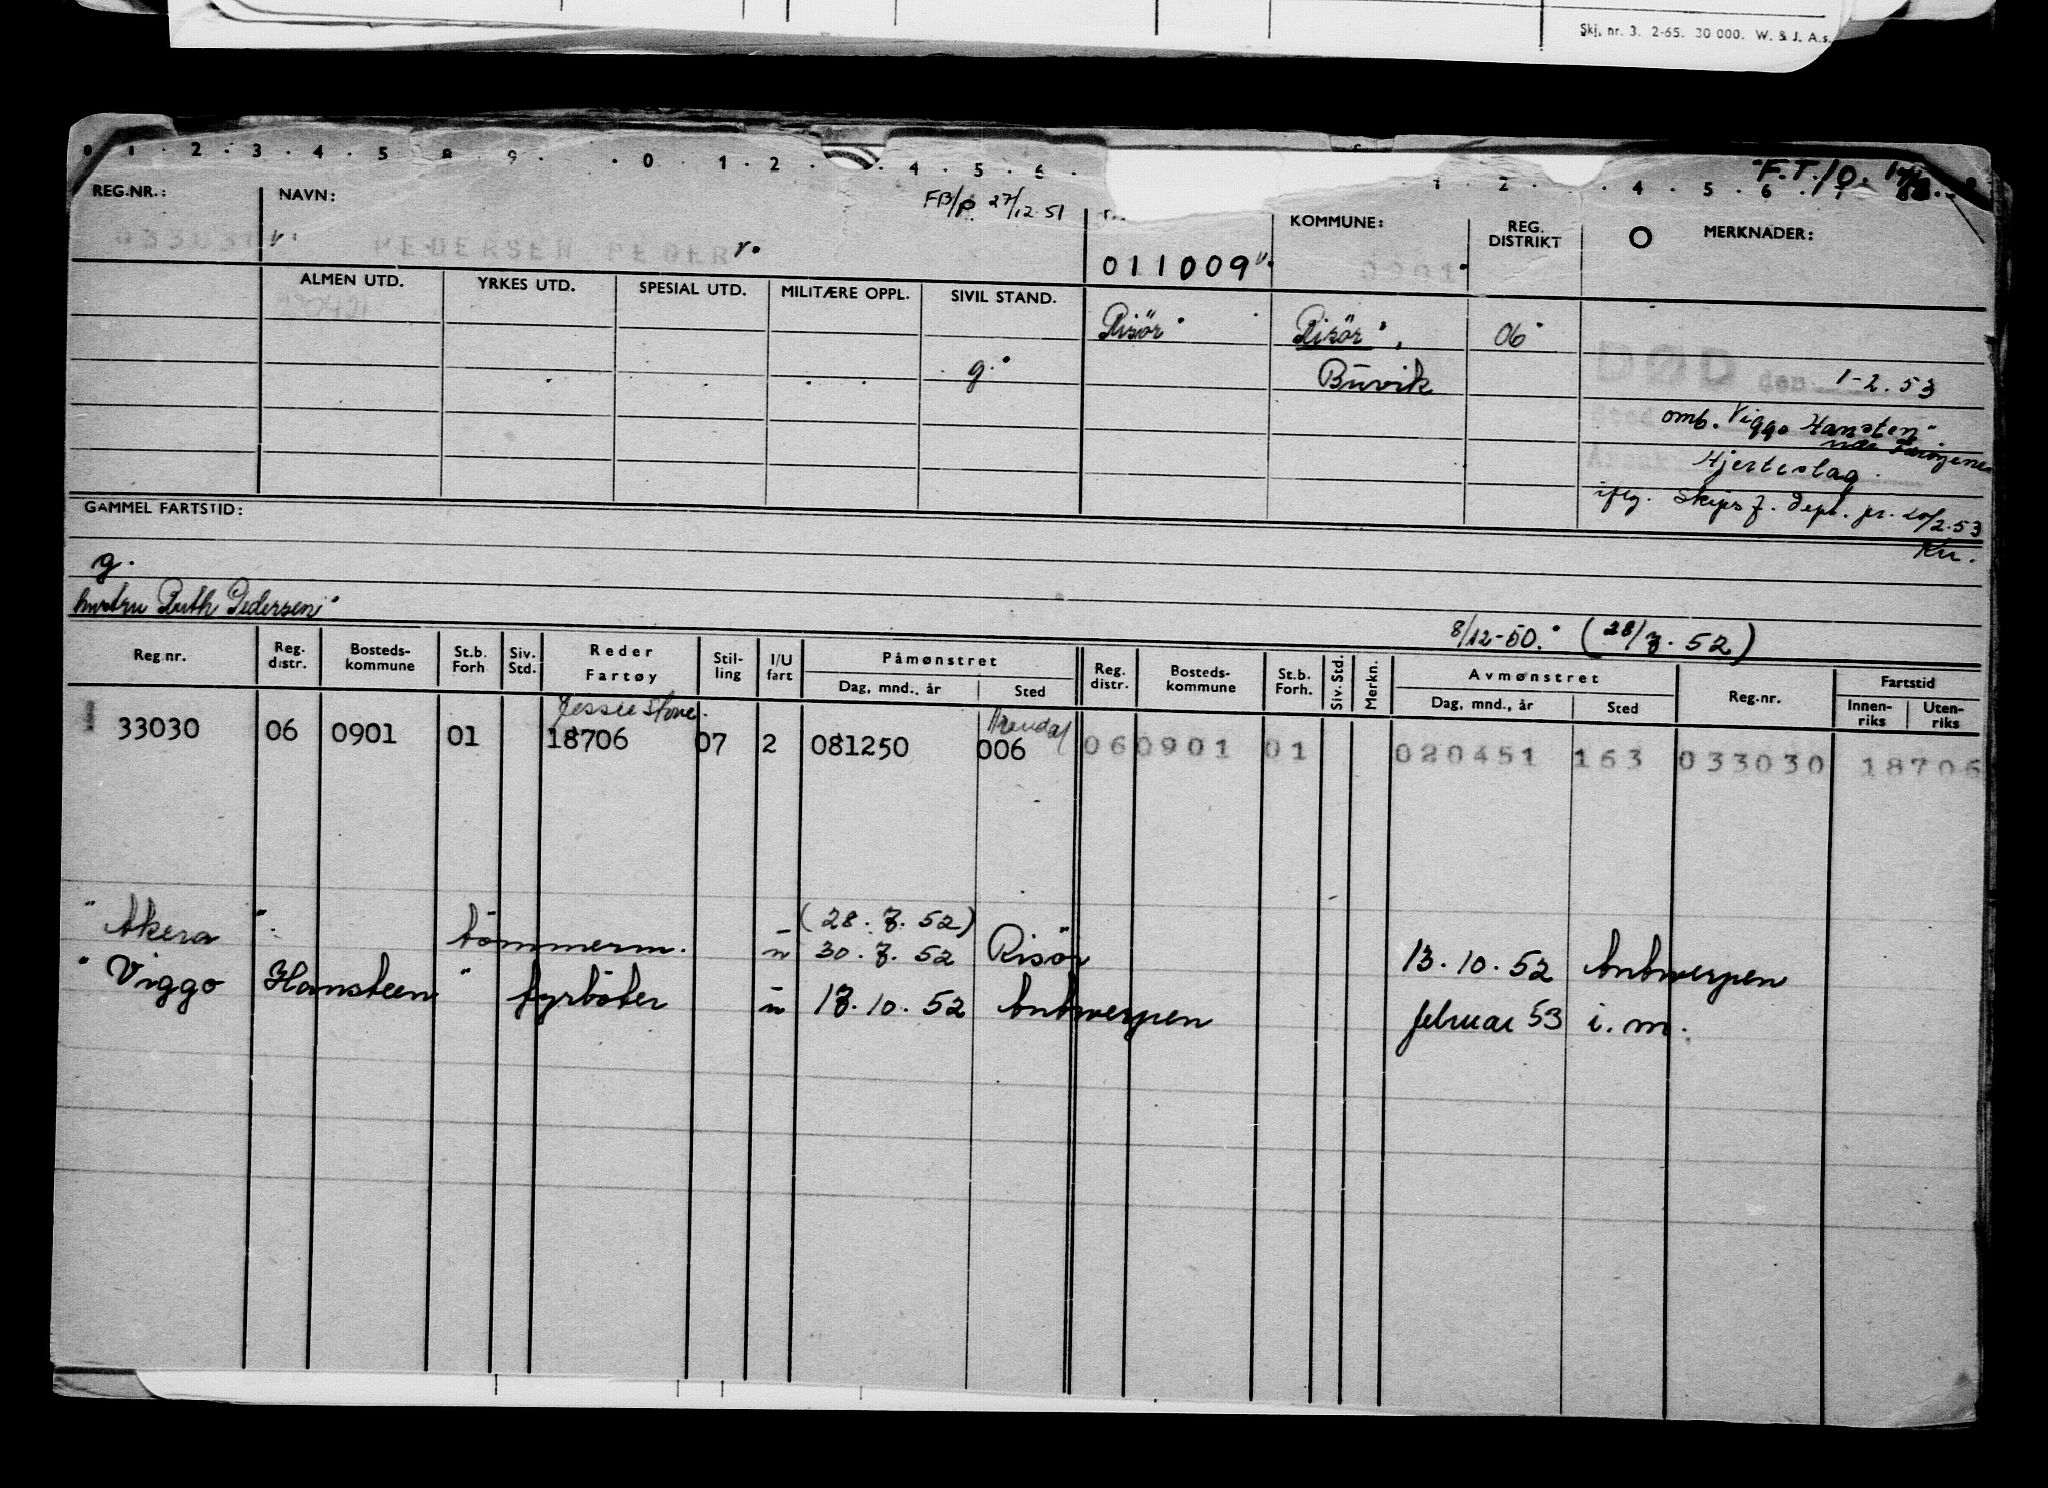 Skj. nr. 3. 2-65. 30 000. W. & J. A.s.
1 . 2 . 3 . 4 . 5 8 9 . . 0 . 1 . 2 . 4 . 5 . 6 . 1 2 . 4 . 5 . 6
F.T.10.
REG.NR.: NAVN: FB/P. 27/12.51 KOMMUNE: REG. DISTRIKT O MERKNADER:
PEDERSEN PEDER 011009 0901
ALMEN UTD. YRKES UTD. SPESIAL UTD. MILITÆRE OPPL. SIVIL STAND.
Risör Risör 06
g. Buvik DØD den 1-2.53
omb. "Viggo Hansten"
nær Færöyene
Hjerteslag
iflg. Skipsf. dept. pr. 20/2.53
Kn.
GAMMEL FARTSTID:
g.
hustru Ruth Pedersen
8/12-50. (28/7.52)
Reg.nr. Reg. distr. Bosteds-kommune St.b. Forh Siv. Std. Reder Fartøy Stil-ling I/U fart Påmønstret Dag, mnd., år Sted Reg. distr. Bosteds-kommune St.b. Forh. Siv. Std. Merkn. Avmønstret Dag, mnd., år Sted Reg.nr. Fartstid Innen-riks Uten-riks
Jessie Stove. Arendal
33030 06 0901 01 18706 07 2 081250 006 06 0901 01 020451 163 033030 18706
(28.7.52)
"Akera" tömmerm. u 30.7.52 Risör 13.10.52 Antwerpen
"Viggo Hansteen" fyrböter u 17.10.52 Antwerpen februar 53 i.m.